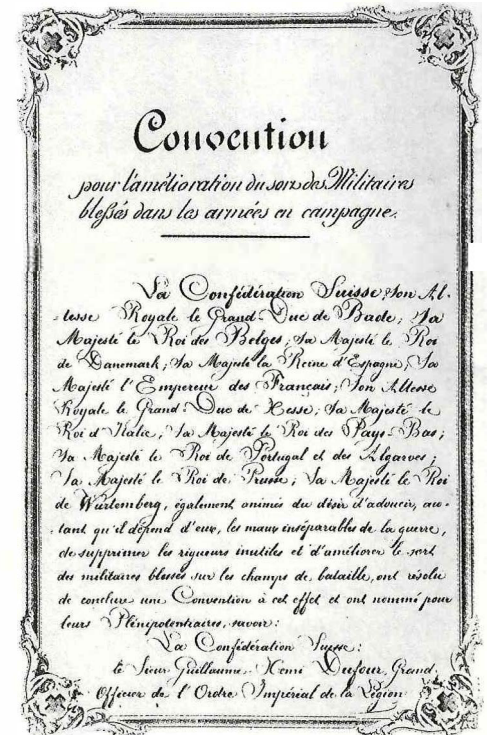 Convention
pour l'amélioration du sort des Militaires
blessés dans les armées en campagne.
La Confédération Suisse; Son Al-
-tesse Royale le Grand-Duc de Bade; Sa
Majesté le Roi des Belges; Sa Majesté le Roi
de Danemark; Sa Majesté la Reine d'Espagne; Sa
Majesté l'Empereur des Français; Son Altesse
Royale le Grand-Duc de Hesse; Sa Majesté le
Roi d'Italie; Sa Majesté le Roi des Pays-Bas;
Sa Majesté le Roi de Portugal et des Algarves;
Sa Majesté le Roi de Prusse; Sa Majesté le Roi
de Würtemberg, également animés du désir d'adoucir, au-
-tant qu'il dépend d'eux, les maux inséparables de la guerre,
de supprimer les rigueurs inutiles et d'améliorer le sort
des militaires blessés sur les champs de bataille, ont résolu
de conclure une Convention à cet effet et ont nommé pour
leurs Plénipotentiaires, savoir:
La Confédération Suisse:
le Sieur Guillaume-Henri Dufour, Grand
Officier de l'Ordre Impérial de la Légion